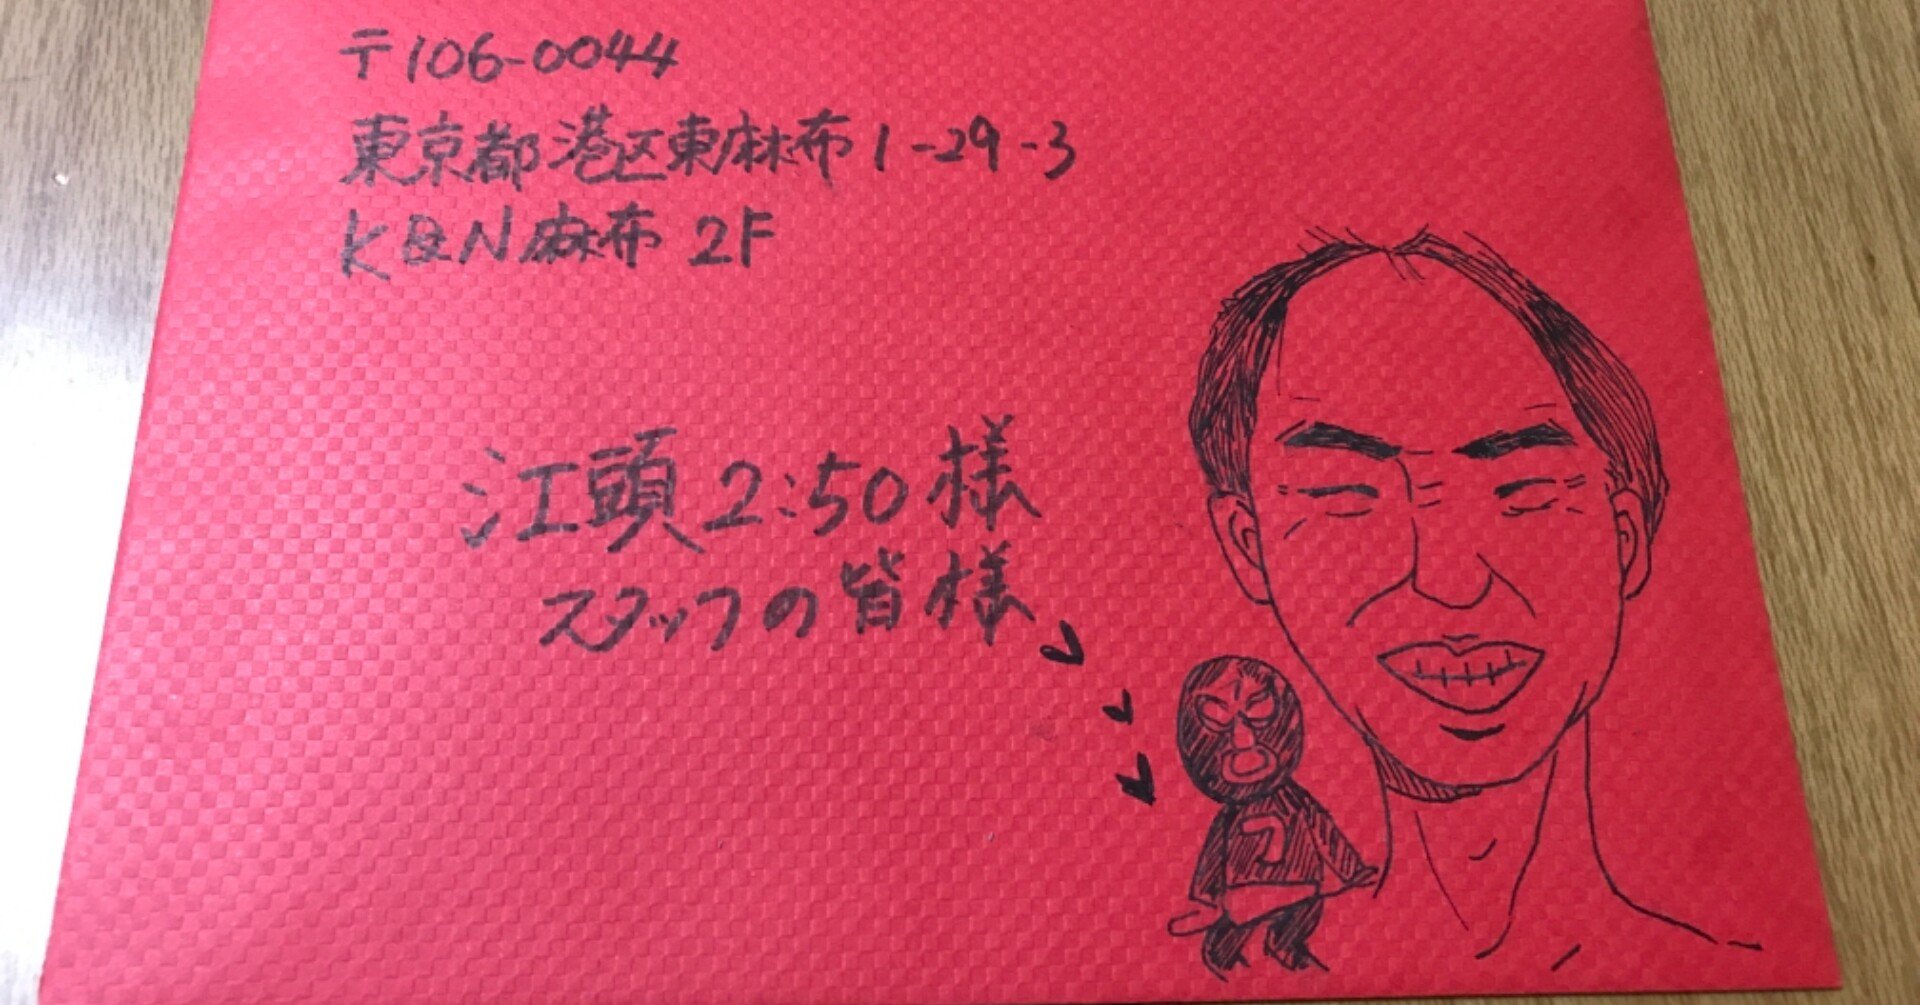 〒106-0044
東京都港区東麻布1-29-3
K&N麻布 2F
江頭2:50様
スタッフの皆様
フ